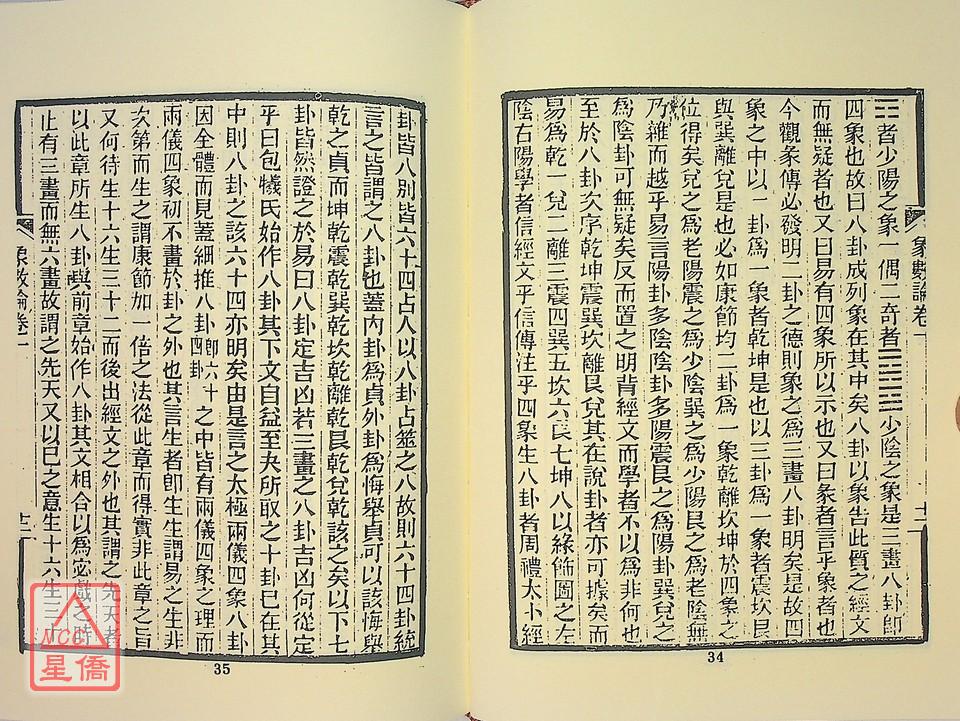 ☳者少陽之象一偶二奇者☴☲☱少陰之象是三畫八卦即
四象也故曰八卦成列象在其中矣八卦以象告此質之經文
而無疑者也又曰易有四象所以示也又曰彖者言乎象者也
今觀彖傳必發明二卦之德則象之為三畫八卦明矣是故四
象之中以一卦為一象者乾坤是也以三卦為一象者震坎艮
與巽離兌是也必如康節均二卦為一象乾離坎坤於四象之
位得矣兌之為老陽震之為少陰巽之為少陽艮之為老陰無
乃雜而越乎易言陽卦多陰陰卦多陽震艮之為陽卦巽兌之
為陰卦可無疑矣反而置之明背經文而學者不以為非何也
至於八卦次序乾坤震巽坎離艮兌其在說卦者亦可據矣而
易為乾一兌二離三震四巽五坎六艮七坤八以緣飾圖之左
陰右陽學者信經文乎信傳注乎四象生八卦者周禮太卜經
象數論卷一
十一
34
卦皆八別皆六十四占人以八卦占筮之八故則六十四卦統
言之皆謂之八卦也蓋內卦為貞外卦為悔舉貞可以該悔舉
乾之貞而坤乾震乾巽乾坎乾離乾艮乾兌乾該之矣以下七
卦皆然證之於易曰八卦定吉凶若三畫之八卦吉凶何從定
乎曰包犧氏始作八卦其下文自益至夬所取之十卦已在其
中則八卦之該六十四亦明矣由是言之太極兩儀四象八卦
因全體而見蓋細推八卦即六十四卦之中皆有兩儀四象之理而
兩儀四象初不畫於卦之外也其言生者即生生謂易之生非
次第而生之謂康節加一倍之法從此章而得實非此章之旨
又何待生十六生三十二而後出經文之外也其謂之先天者
以此章所生八卦與前章始作八卦其文相合以為宓戲之時
止有三畫而無六畫故謂之先天又以己之意生十六生三
象數論卷一
十二
35
NCC
星僑